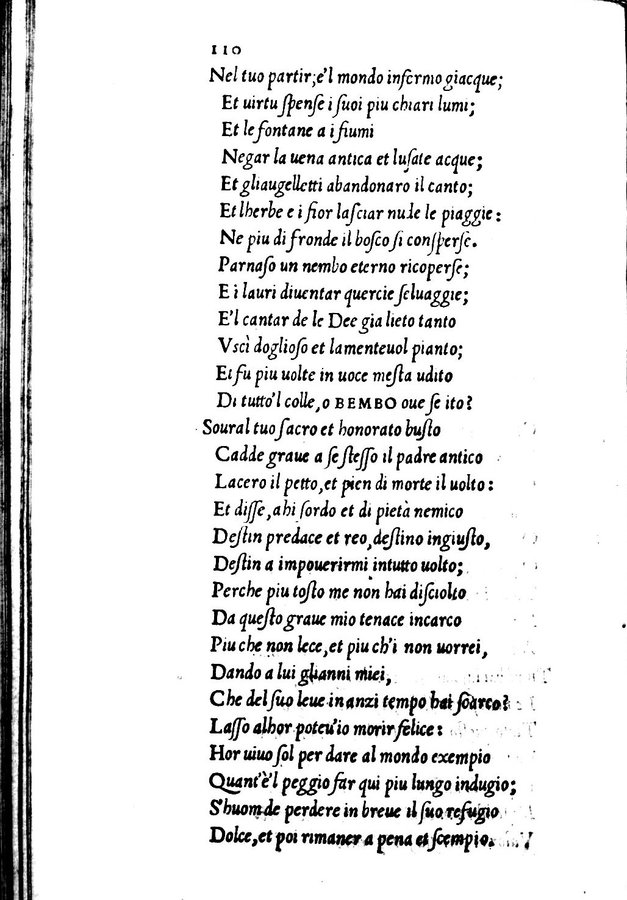 110
Nel tuo partir; e'l mondo infermo giacque;
Et uirtu ſpenſe i ſuoi piu chiari lumi;
Et le fontane a i fiumi
Negar la uena antica et luſate acque;
Et gliaugelletti abandonaro il canto;
Et lherbe e i fior laſciar nude le piaggie:
Ne piu di fronde il boſco ſi conſperſe.
Parnaſo un nembo eterno ricoperſe;
E i lauri diuentar quercie ſeluaggie;
E'l cantar de le Dee gia lieto tanto
Vſcì doglioſo et lamenteuol pianto;
Et fu piu uolte in uoce meſta udito
Di tutto'l colle, o BEMBO oue ſe ito?
Soural tuo ſacro et honorato buſto
Cadde graue a ſe ſteſſo il padre antico
Lacero il petto, et pien di morte il uolto:
Et diſſe, ahi ſordo et di pietà nemico
Deſtin predace et reo, deſtino ingiuſto,
Deſtin a impouerirmi intutto uolto;
Perche piu toſto me non hai diſciolto
Da queſto graue mio tenace incarco
Piu che non lece, et piu ch'i non uorrei,
Dando a lui glianni miei,
Che del ſuo leue inanzi tempo hai ſcarco?
Laſſo alhor poteu'io morir felice:
Hor uiuo ſol per dare al mondo exempio
Quant'è'l peggio far qui piu lungo indugio;
S'huom de perdere in breue il ſuo refugio
Dolce, et poi rimaner a pena et ſcempio.